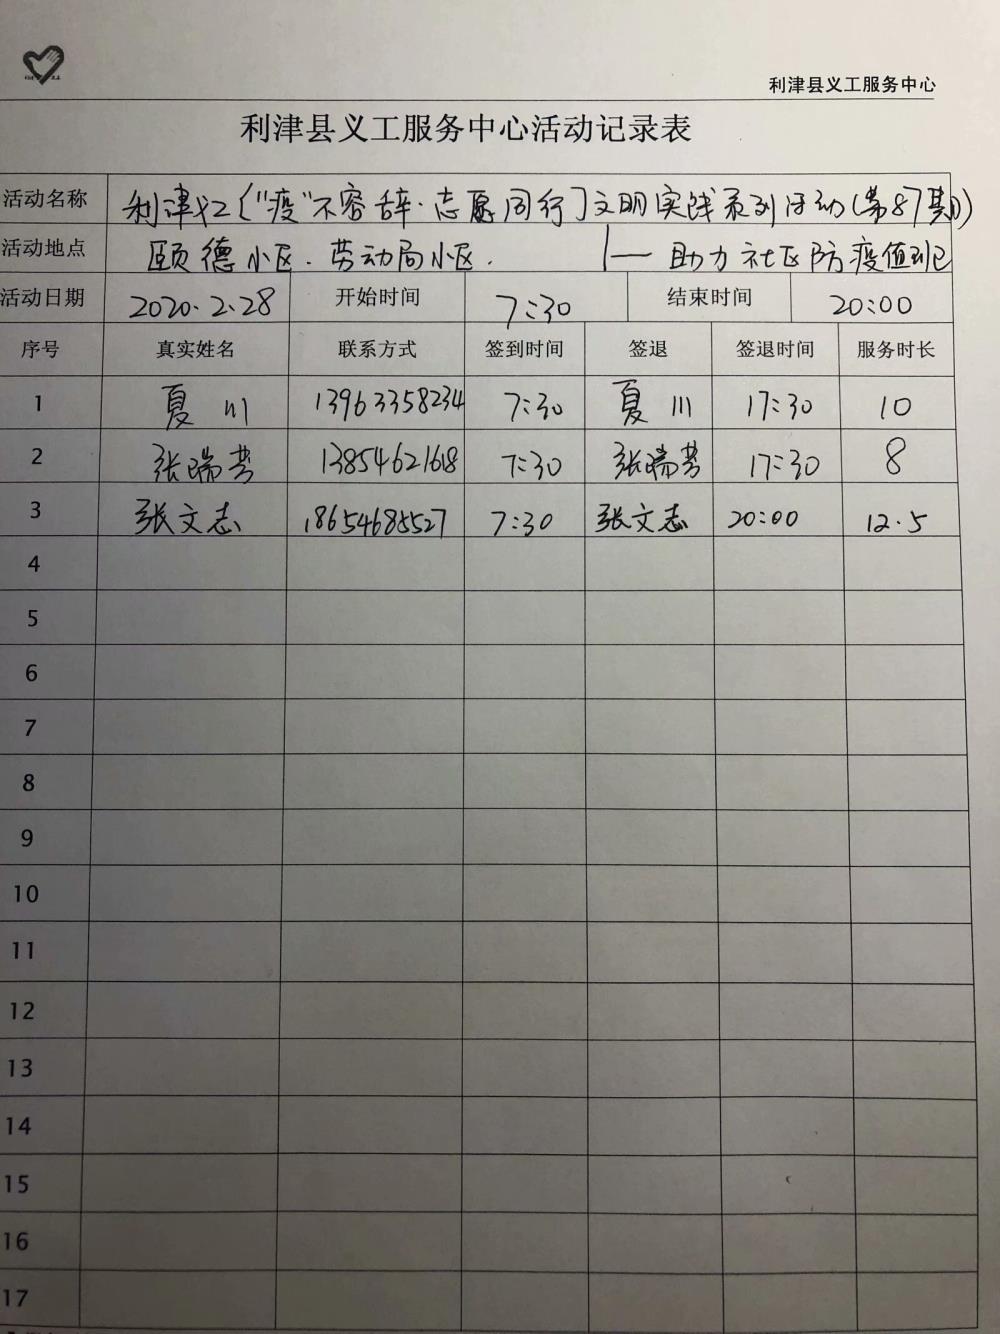 利津县义工服务中心
利津县义工服务中心活动记录表
活动名称 利津义工〔“疫”不容辞·志愿同行〕文明实践系列活动(第87期)
活动地点 颐德小区.劳动局小区. 助力社区防疫值班
活动日期 2020.2.28 开始时间 7:30 结束时间 20:00
序号 真实姓名 联系方式 签到时间 签退 签退时间 服务时长
1 夏川 13963358234 7:30 夏川 17:30 10
2 张瑞芳 13854621618 7:30 张瑞芳 17:30 8
3 张文志 18654685527 7:30 张文志 20:00 12.5
4
5
6
7
8
9
10
11
12
13
14
15
16
17